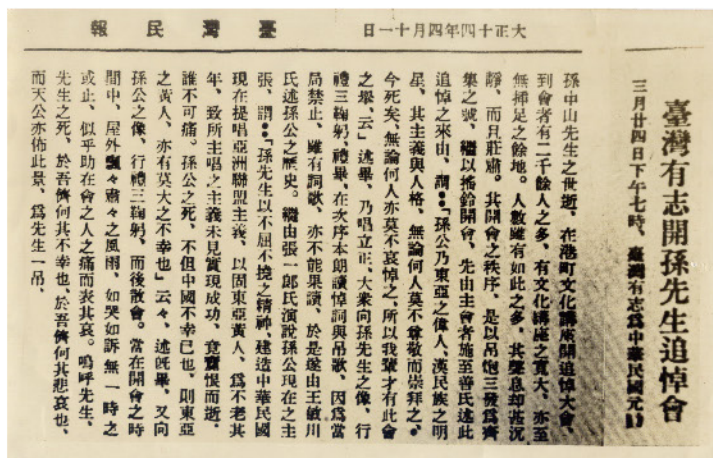 大正十四年四月十一日
臺灣民報
臺灣有志開孫先生追悼會
三月廿四日下午七時、臺灣有志爲中華民國元首
孫中山先生之世逝、在港町文化講座開追悼大會、
到會者有二千餘人之多、有文化講座之寬大、亦至
無揷足之餘地。人數雖有如此之多、其聲息却甚沉
靜、而且莊肅。其開會之秩序、是以吊炮三發爲齊
集之號、繼以搖鈴開會、先由主會者施至善氏述此
追悼之來由、謂••「孫公乃東亞之偉人、漢民族之明
星、其主義與人格、無論何人莫不尊敬而崇拜之。
今死矣、無論何人亦莫不哀悼之、所以我輩才有此會
之舉、云」述畢、乃唱立正、大衆向孫先生之像、行
禮三鞠躬、禮畢、在次序本朗讀悼詞與吊歌、因爲當
局禁止、雖有詞歌、亦不能果讀、於是遂由王敏川
氏述孫公之歷史。繼由張一郎氏演說孫公現在之主
張、謂••「孫先生以不屈不撓之精神、建造中華民國
現在提唱亞洲聯盟主義、以固東亞黃人、爲不老其
年、致所主唱之主義未見實現成功、竟賫恨而逝、
誰不可痛。孫公之死、不但中國不幸已也、則東亞
之黃人、亦有莫大之不幸也」云々、述旣畢、又向
孫公之像、行禮三鞠躬、而後散會。當在開會之時
間中、屋外飄々肅々之風雨、如哭如訴無一時之
或止、似乎助在會之人之痛而表其哀。嗚呼先生、
先生之死、於吾儕何其不幸也、於吾儕何其悲哀也、
而天公亦佈此景、爲先生一吊、